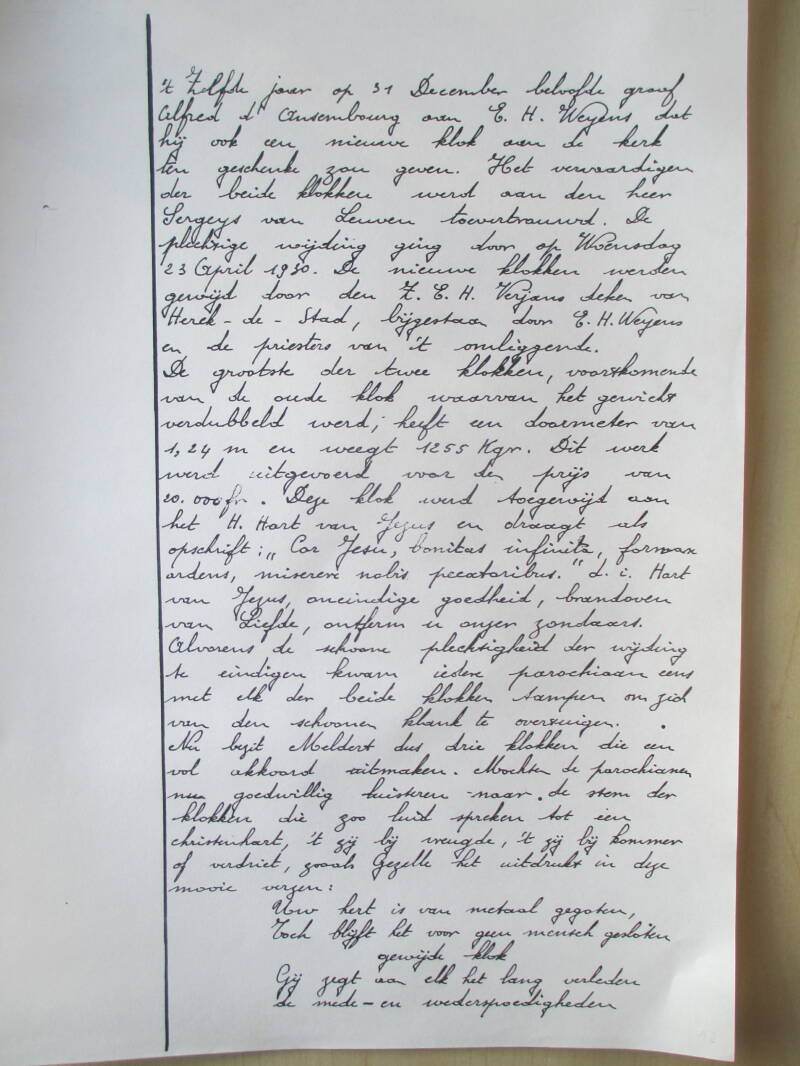 't Zelfde jaar op 31 December beloofde graaf
Alfred d' Ansembourg aan E. H. Weyens dat
hij ook een nieuwe klok aan de kerk
ten geschenke zou geven. Het vervaardigen
der beide klokken werd aan den heer
Sergeys van Leuven toevertrouwd. De
plechtige wijding ging door op Woensdag
23 April 1930. De nieuwe klokken werden
gewijd door den Z. E. H. Verjans deken van
Herck-de-Stad, bijgestaan door E. H. Weyens
en de priesters van 't omliggende.
De grootste der twee klokken, voortkomende
van de oude klok waarvan het gewicht
verdubbeld werd, heeft een doormeter van
1,24 m en weegt 1255 Kgr. Dit werk
werd uitgevoerd voor den prijs van
20.000 fr. Deze klok werd toegewijd aan
het H. Hart van Jezus en draagt als
opschrift: „Cor Jesu, bonitas infinita, fornax
ardens, miserere nobis peccatoribus." d. i. Hart
van Jezus, oneindige goedheid, brandoven
van Liefde, ontferm u onzer zondaars.
Alvorens de schoone plechtigheid der wijding
te eindigen kwam iedere parochiaan eens
met elk der beide klokken tampen om zich
van den schoonen klank te overtuigen.
Nu bezit Meldert dus drie klokken die een
vol akkoord uitmaken. Mochten de parochianen
nu goedwillig luisteren naar de stem der
klokken die zoo luid spreken tot een
christenhart, 't zij bij vreugde, 't zij bij kommer
of verdriet, zooals Gezelle het uitdrukt in deze
mooie verzen:
Uw hert is van metaal gegoten,
Toch blijft het voor geen mensch gesloten
gewijde klok
Gij zegt aan elk het lang verleden
de mede-en wederspoedigheden
12